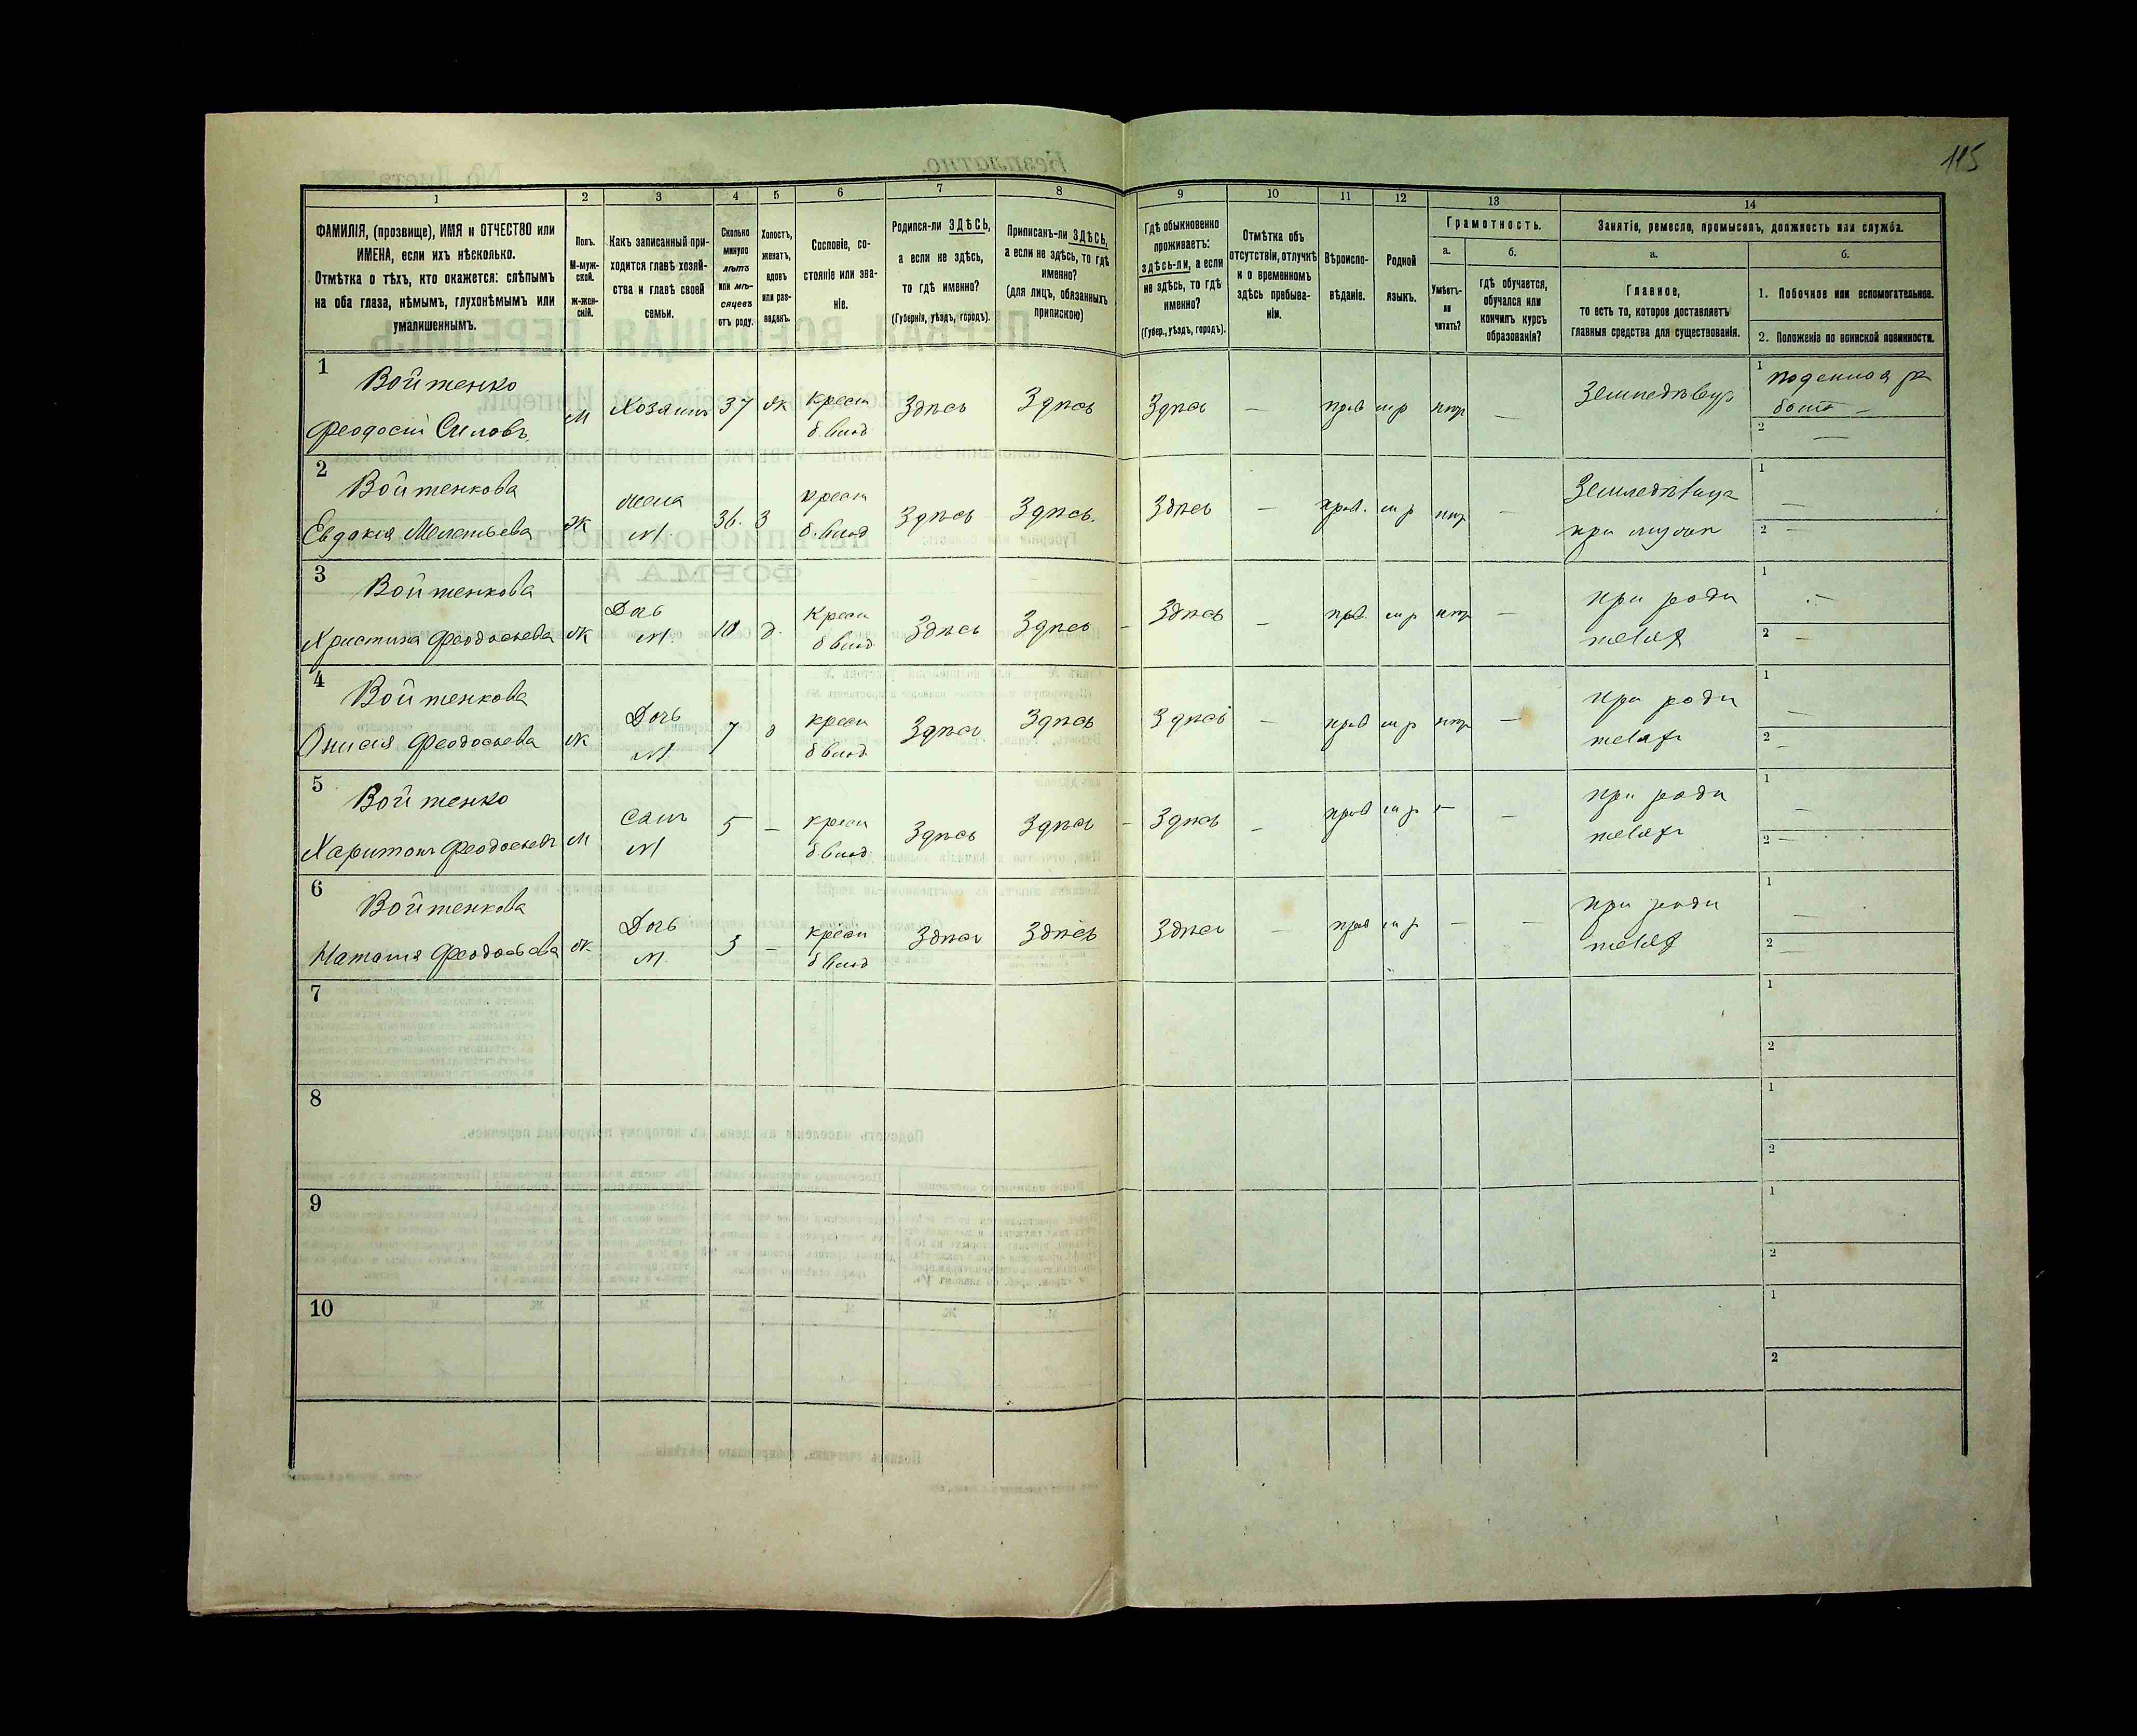 115
1 2 3 4 5 6 7 8 9 10 11 12 13 14
ФАМИЛІЯ, (прозвище), ИМЯ и ОТЧЕСТВО или
ИМЕНА, если ихъ нѣсколько.
Отмѣтка о тѣхъ, кто окажется: слѣпымъ
на оба глаза, нѣмымъ, глухонѣмымъ или
умалишеннымъ.
Полъ.
М-муж-
ской.
Ж-жен-
скій.
Какъ записанный при-
ходится главѣ хозяй-
ства и главѣ своей
семьи.
Сколько
минуло
лѣтъ
или мѣ-
сяцевъ
отъ роду.
Холостъ,
женатъ,
вдовъ
или раз-
веденъ.
Сословіе, со-
стояніе или зва-
ніе.
Родился-ли ЗДѢСЬ,
а если не здѣсь,
то гдѣ именно?
(Губернія, уѣздъ, городъ).
Приписанъ-ли ЗДѢСЬ,
а если не здѣсь, то гдѣ
именно?
(для лицъ, обязанныхъ
припискою)
Гдѣ обыкновенно
проживаетъ:
здѣсь-ли, а если
не здѣсь, то гдѣ
именно?
(Губер., уѣздъ, городъ).
Отмѣтка объ
отсутствіи, отлучкѣ
и о временномъ
здѣсь пребыва-
ніи.
Вѣроиспо-
вѣданіе.
Родной
языкъ.
Грамотность.
а.
Умѣетъ-
ли
читать?
б.
гдѣ обучается,
обучался или
кончилъ курсъ
образованія?
Занятіе, ремесло, промыселъ, должность или служба.
а.
Главное,
то есть то, которое доставляетъ
главныя средства для существованія.
б.
1. Побочное или вспомогательное.
2. Положеніе по воинской повинности.
1
Войтенко
Феодосій Силовъ
М Хозяинъ 37 ж
крест
б.влад
Здѣсь Здѣсь Здѣсь — прав мр нгр —
Земледѣлецъ
1 поденная ра
бота —
2 —
2
Войтенкова
Евдокія Мелентьева
Ж
жена
М
36. З
крест
б.влад
Здѣсь Здѣсь. Здѣсь — прав. мр нгр —
Земледѣлица
при мужѣ
1 —
2 —
3
Войтенкова
Христина Феодосьева
Ж
Дочь
М.
10 д.
Крест
б влад
Здѣсь Здѣсь Здѣсь — прв. мр нгр —
при роди
теляхъ
1 —
2 —
4
Войтенкова
Онисія Феодосьева
Ж
Дочь
М
7 д
крест
б влад
Здѣсь Здѣсь Здѣсь — прав мр нгр —
при роди
теляхъ
1 —
2 —
5
Войтенко
Харитонъ Феодосьевъ
М
Сынъ
М
5 —
крест
б влад
Здѣсь Здѣсь Здѣсь — прав мр — —
при роди
теляхъ
1 —
2 —
6
Войтенкова
Наталія Феодосьева
Ж
Дочь
М.
3 —
крест
б влад
Здѣсь Здѣсь Здѣсь — прав мр — —
при роди
теляхъ
1 —
2 —
7
1
2
8
1
2
9
1
2
10
1
2